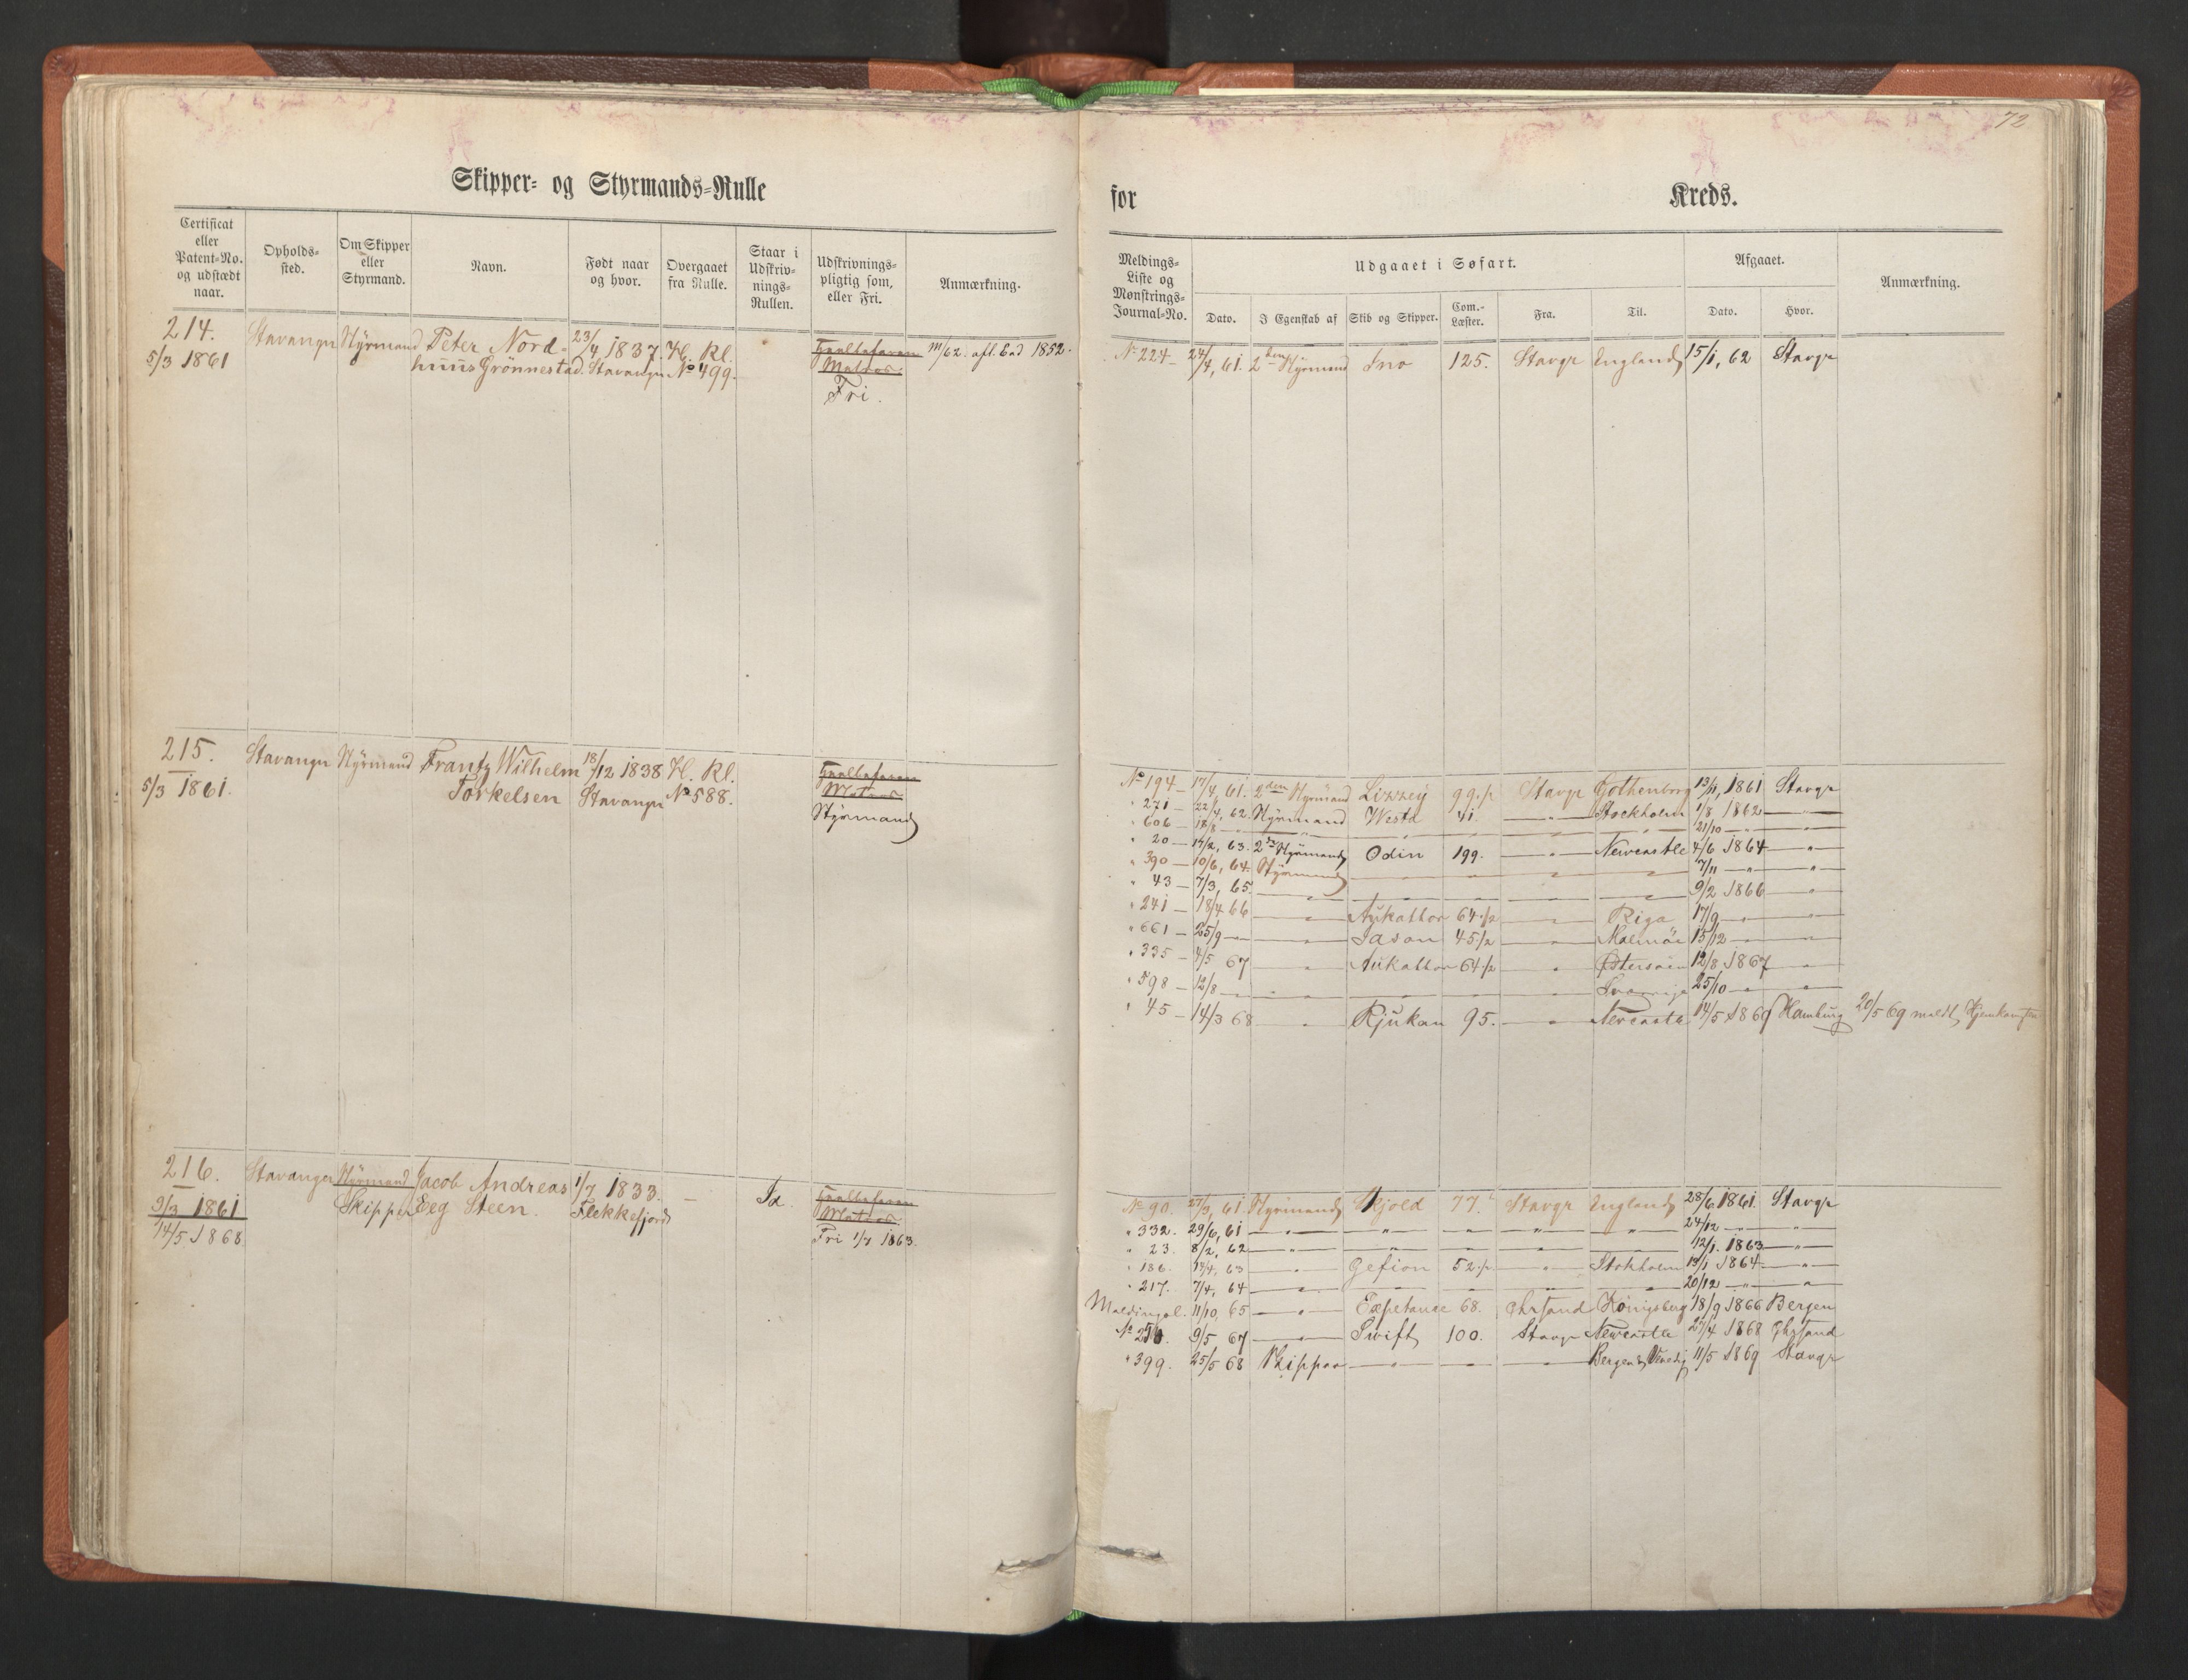 72
Skipper- og Styrmands-Rulle
for Kreds.
Certificat eller Patent-No. og udstædt naar.
Opholds-sted.
Om Skipper eller Styrmand.
Navn.
Født naar og hvor.
Overgaaet fra Rulle.
Staar i Udskriv-nings-Rullen.
Udskrivnings-pligtig som, eller Fri.
Anmærkning.
Meldings-Liste og Mønstrings-Journal-No.
Udgaaet i Søfart.
Dato.
I Egenskab af
Skib og Skipper.
Com.-Læster.
Fra.
Til.
Afgaaet.
Dato.
Hvor.
Anmærkning.
214. Stavanger Styrmand Peter Nord- 23/4, 1837. H. Rl.
5/3 1861 huus Grönnestad. Stavanger No 499.
Matros
Fri.
m/62. afl. Ed 1852.
No 224 24/4, 61. 2den Styrmand Ino 125. Stavgr England 15/1, 62 Stavgr
215. Stavanger Styrmand Frantz Wilhelm 18/12 1838 H. Rl.
5/3 1861. Torkelsen Stavanger No 588.
Matros
Styrmand
No 194 17/4, 61. 2den Styrmand Lizzey 99 1/2 Stavgr Gothenborg 13/11, 1861 Stavgr
" 271 22/4, 62. Styrmand Westa 41. — " — Stockholm 1/8 1862 — " —
" 606 18/8 — " — — " — 21/10 — " —
" 20 14/2, 63. 2den Styrmand Odin 199. — " — Newcastle 4/6 1864 — " —
" 390 10/6, 64. Styrmand — " — 7/11 — " —
" 43 7/3, 65. — " — 9/2 1866 — " —
" 241 18/4 66 — " — Aukathor 64 1/2 — " — Riga 17/9 — " —
" 661 25/9 — " — Jason 45 1/2 — " — Malmöe 15/12 — " —
" 335 4/5 67 — " — Aukathor 64 1/2 — " — Østersöen 12/8 1867 — " —
" 598 12/8 — " — — " — Sverrige 25/10 — " —
" 45 14/3 68 — " — Rjukan 95. — " — Newcastle 14/5 1869 Hamburg 20/5 69 meldt Hjemkomsten
216. Stavanger Styrmand Jacob Andreas 1/7 1833. — Ja.
9/3 1861 Skipper Eeg Steen. Flekkefjord
14/5 1868.
Matros
Fri 1/7 1863.
No 90. 27/3, 61. Styrmand Skjold 77. Stavgr England 28/6 1861. Stavgr
" 332. 29/6, 61 — " — 24/12 — " —
" 23. 8/2, 62 — " — 12/1. 1863 — " —
" 186. 13/4, 63 — " — Gefion 52 1/2 — " — Stokholm 19/1 1864 — " —
" 217. 7/4, 64 — " — 20/12 — " —
11/10, 65 — " — Expetance 68. Chrsand Königsberg 18/9 1866 Bergen
No 9/5 67 — " — Swift 100. Stavgr Newcastle 27/4 1868 Chrsand
" 399. 25/5 68 Skipper — " — Bergen & Venedig 11/5 1869 Stavgr